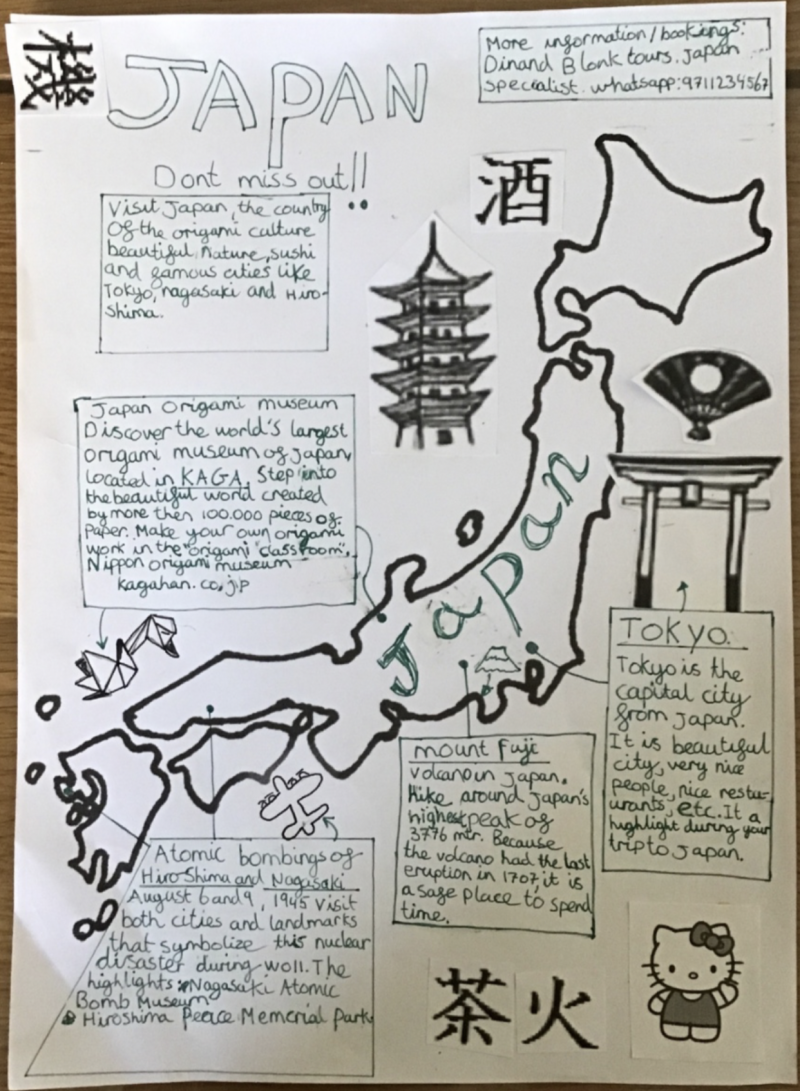 機
JAPAN
More information/bookings:
Dinand Blonk tours. Japan
specialist. whatsapp: 9711234567
Dont miss out!!
酒
Visit Japan, the country
of the origami culture
beautiful nature, sushi
and famous cities like
Tokyo, nagasaki and Hiro-
shima.
Japan Origami museum
Discover the world's largest
origami museum of Japan,
located in KAGA. Step into
the beautiful world created
by more then 100.000 pieces of
paper. Make your own origami
work in the "origami classroom".
Nippon origami museum
kagahan.co.jp
Japan
Tokyo
Tokyo is the
capital city
from Japan.
It is beautiful
city, very nice
people, nice restu-
urants, etc. It a
highlight during your
trip to Japan.
mount Fuji
Volcano in Japan.
Hike around Japan's
highest peak of
3776 mtr. Because
the volcano had the last
eruption in 1707, it is
a safe place to spend
time.
Atomic bombings of
Hiroshima and Nagasaki
August 6 and 9, 1945 Visit
both cities and landmarks
that symbolize this nuclear
disaster during WOII. The
highlights Nagasaki Atomic
Bomb Museum
Hiroshima Peace Memorial Park
茶 火